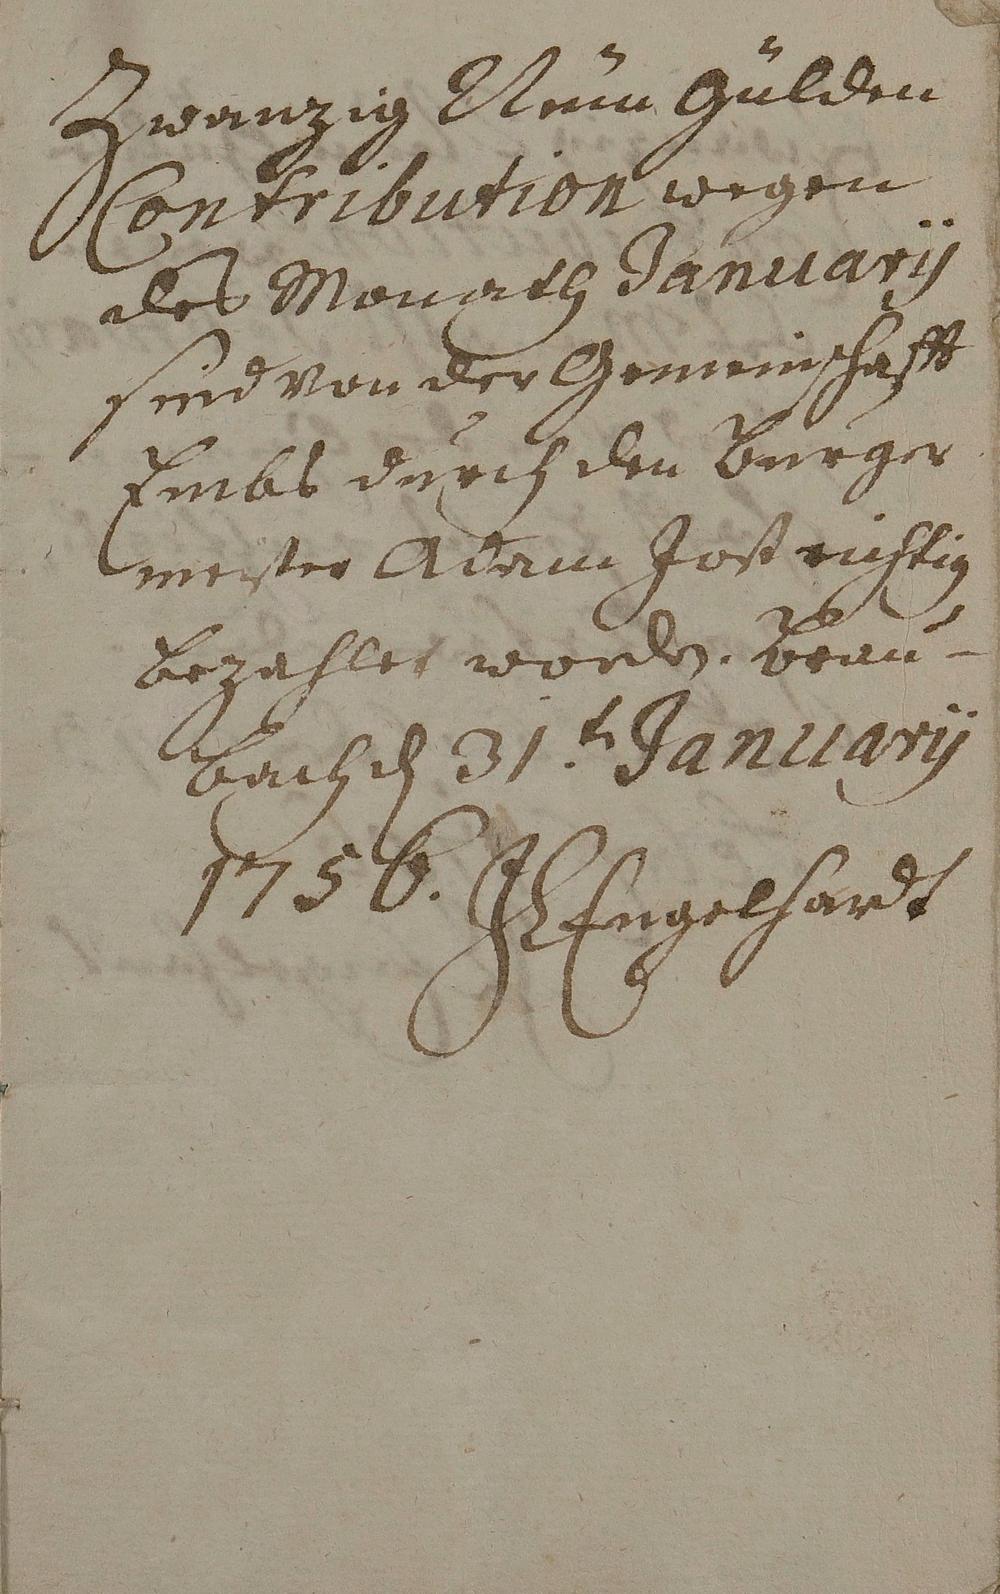 Zwanzig Neün Gülden
Contribution wegen
des Monaths Januarÿ
sind von der Gemeinschafft
Embs durch den Burger
meister Adam Jost richtig
bezahlet worden. Brau-
bach d 31.t Januarÿ
1756. JL Engelhardt